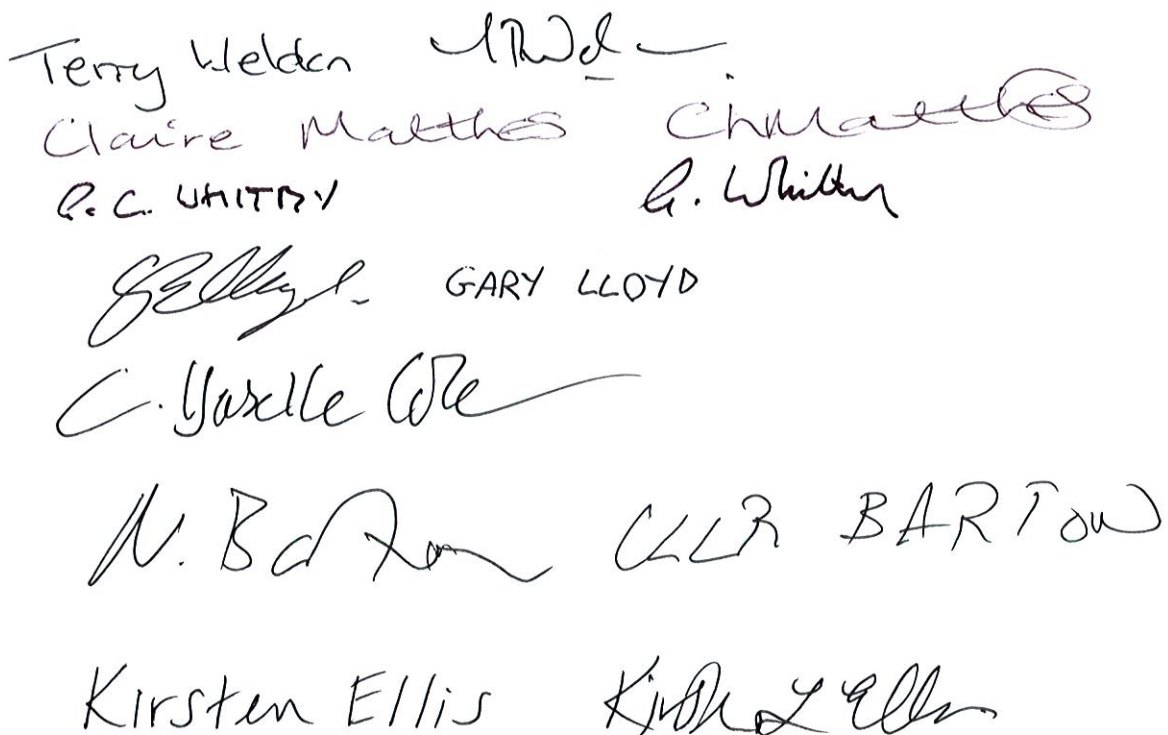 Terry Weldon
Claire Matthes CHMatthes
G. Whitby
GARY LLOYD
C. Cole
N. Barton CLLR BARTON
Kirsten Ellis Kirsten L Ellis